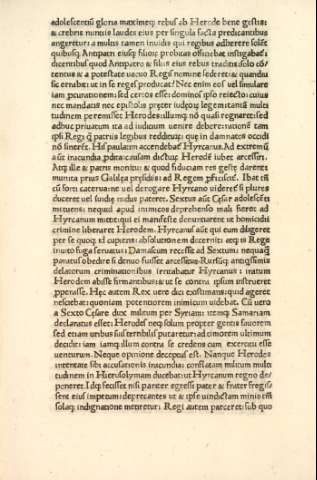 adolescentũ gloria maximeq; rebus ab Herode bene gestis:
& crebris nunciis laudes eius per singula facta predicantibus
angeretur: a multis tamen inuidis qui regibus adherere solẽt
quibusq; Antipatri eiusq; filioꝝ probitas officiebat instigabat̃:
dicentibus quod Antipatro & filiis eius rebus traditis solo cõ/
tentus & a potestate uacuo Regis nomine sederet: & quandiu
sic erraret: ut in se reges produceret? Nec enim eos uel simulare
iam procurationem: sed certos esse dominos ipso reiecto: cuius
nec mandatis nec epistolis preter iudeoꝝ legem tantã multi
tudinem peremisset Herodes: illumq; nõ quasi regnaret: sed
adhuc priuatum ita ad iudicium uenire debere: rationẽ tam
ipsi Regi q̃ patriis legibus redditurũ: que in damnatos occidi
nõ sinerẽt. His paulatim accendebat̃ Hyrcanus. Ad extremũ
aũt iracundia prodita: causam dicturũ Herodẽ iubet arcessiri.
Atq; ille & patris monitu: & quod fiduciam res geste darent
munita prius Galilea presidiis ad Regem proficiscit̃. Ibat etiã
cũ forti caterua: ne uel derogare Hyrcano uideret̃ si plures
duceret uel inuidie nudus pateret. Sextus aũt Cesar adolescẽti
metuens: nequid apud inimicos deprehenso mali fieret: ad
Hyrcanum mittit: qui ei manifeste denunciarent ut homicidii
crimine liberaret Herodem. Hyrcanus aũt qui eum diligeret
per se quoq; id cupiens: absolutionem decernit: atq; is Rege
inuito fuga seruatus: Damascum recessit ad Sextum: nequaq̃
paratus obedire si denuo fuisset arcessitus. Rursusq; nequissimis
delatorum criminationibus irritabatur Hyrcanus: iratum
Herodem abisse firmantibus: & ut se contra ipsum instrueret
properasse. Hec autem Rex uere dici existimans: quid ageret
nesciebat: quoniam potentiorem inimicum uidebat. Cũ uero
a Sexto Cesare dux militum per Syriam: itemq; Samariam
declaratus esset: Herodes neq; solum propter gentis fauorem
sed etiam uiribus suis terribilis putaretur: ad timorem ultimum
decidit: iam iamq; illum contra se credens cum exercitu esse
uenturum. Neque opinione deceptus est. Nanque Herodes
intentate sibi accusationis iracundia: constatam militum multi
tudinem in Hierosolymam ducebat: ut Hyrcanum regno de/
poneret. Idq; fecisset nisi pariter egressi pater & frater fregis
sent eius impetum: deprecantes ut & ipse uindictam minis &
solaq; indignatione metiretur: Regi autem parceret: sub quo